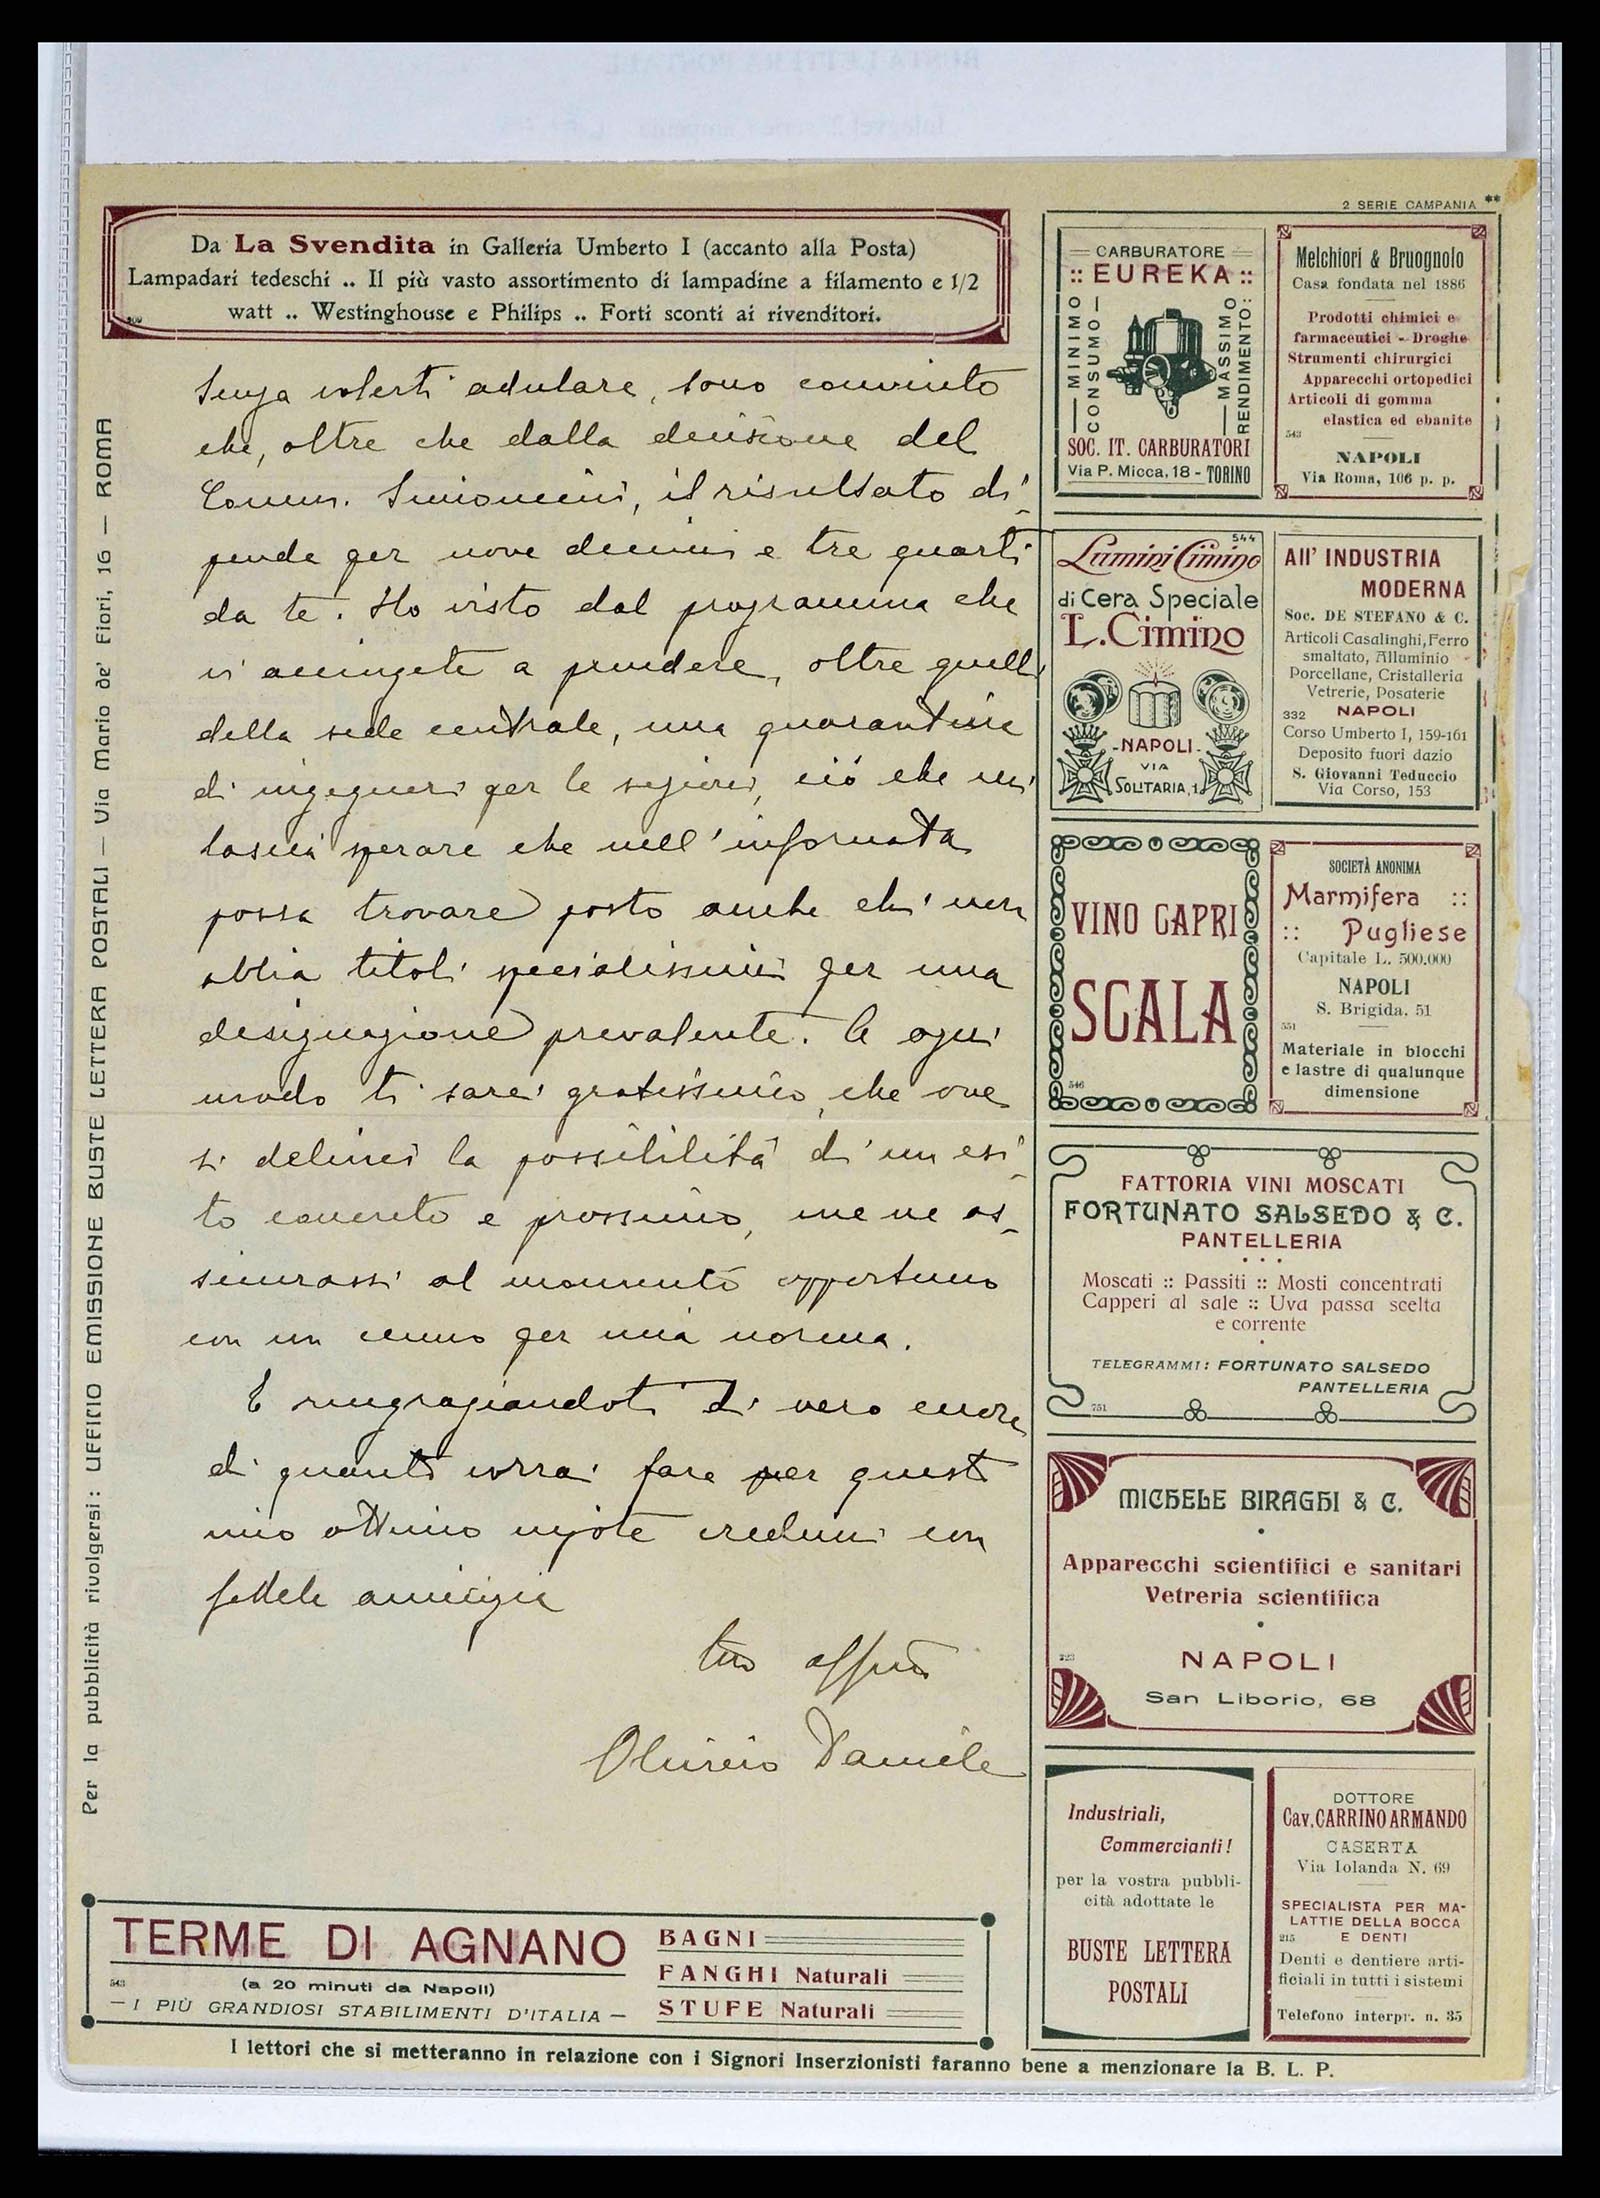 2 SERIE CAMPANIA **
Da La Svendita in Galleria Umberto I (accanto alla Posta)
Lampadari tedeschi .. Il più vasto assortimento di lampadine a filamento e 1/2
watt .. Westinghouse e Philips .. Forti sconti ai rivenditori.
Senza volerti adulare, sono convinto
che, oltre che dalla decisione del
Comm. Simoncini, il risultato di-
pende per nove decimi e tre quarti
da te. Ho visto dal programma che
vi accingete a prendere, oltre quelli
della sede centrale, una quarantina
di ingegneri per le sezioni, ciò che mi
lascia sperare che nell'infornata
possa trovare posto anche chi non
abbia titoli specialissimi per una
designazione prevalente. A ogni
modo ti sarei gratissimo, che ove
si delinei la possibilità di un esi-
to concreto e prossimo, me ne as-
sicurassi al momento opportuno
con un cenno per mia norma.
E ringraziandoti di vero cuore
di quanto vorrai fare per questo
mio ottimo nipote credimi con
fedele amicizia
tuo affmo
Daniele
Per la pubblicità rivolgersi: UFFICIO EMISSIONE BUSTE LETTERA POSTALI — Via Mario de' Fiori, 16 — ROMA
CARBURATORE
:: EUREKA ::
MINIMO
CONSUMO
MASSIMO
RENDIMENTO
SOC. IT. CARBURATORI
Via P. Micca, 18 - TORINO
Melchiori & Bruognolo
Casa fondata nel 1886
Prodotti chimici e
farmaceutici - Droghe
Strumenti chirurgici
Apparecchi ortopedici
Articoli di gomma
elastica ed ebanite
543
NAPOLI
Via Roma, 106 p. p.
544
Lumini Cimino
di Cera Speciale
L. Cimino
NAPOLI
VIA
SOLITARIA, 1
All' INDUSTRIA
MODERNA
Soc. DE STEFANO & C.
Articoli Casalinghi, Ferro
smaltato, Alluminio
Porcellane, Cristalleria
Vetrerie, Posaterie
332 NAPOLI
Corso Umberto I, 159-161
Deposito fuori dazio
S. Giovanni Teduccio
Via Corso, 153
VINO CAPRI
SCALA
546
SOCIETÀ ANONIMA
Marmifera ::
:: Pugliese
Capitale L. 500.000
NAPOLI
S. Brigida. 51
551
Materiale in blocchi
e lastre di qualunque
dimensione
FATTORIA VINI MOSCATI
FORTUNATO SALSEDO & C.
PANTELLERIA
Moscati :: Passiti :: Mosti concentrati
Capperi al sale :: Uva passa scelta
e corrente
TELEGRAMMI: FORTUNATO SALSEDO
PANTELLERIA
751
MICHELE BIRAGHI & C.
Apparecchi scientifici e sanitari
Vetreria scientifica
223
NAPOLI
San Liborio, 68
Industriali,
Commercianti!
per la vostra pubbli-
cità adottate le
BUSTE LETTERA
POSTALI
DOTTORE
Cav. CARRINO ARMANDO
CASERTA
Via Iolanda N. 69
SPECIALISTA PER MA-
LATTIE DELLA BOCCA
215 E DENTI
Denti e dentiere arti-
ficiali in tutti i sistemi
Telefono interpr. n. 35
TERME DI AGNANO
543
(a 20 minuti da Napoli)
— I PIÙ GRANDIOSI STABILIMENTI D'ITALIA —
BAGNI
FANGHI Naturali
STUFE Naturali
I lettori che si metteranno in relazione con i Signori Inserzionisti faranno bene a menzionare la B. L. P.